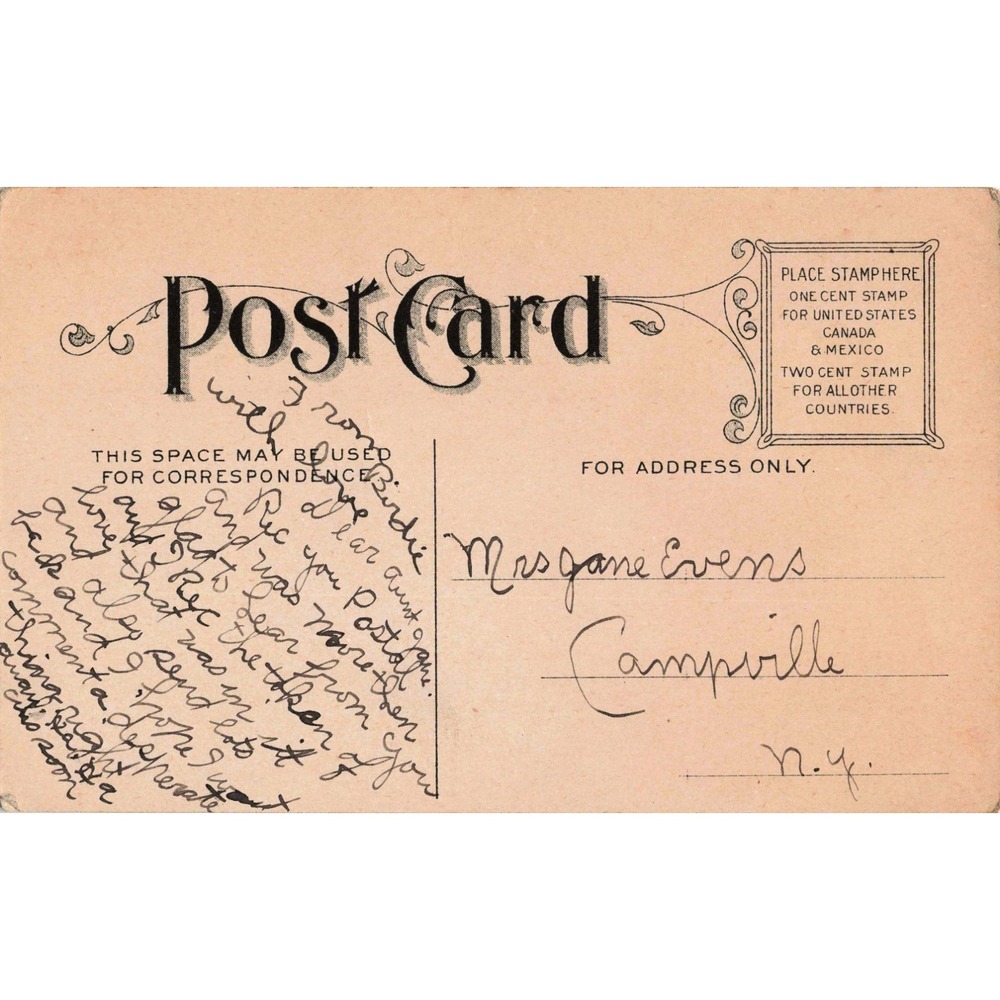 Post Card
PLACE STAMP HERE
ONE CENT STAMP
FOR UNITED STATES
CANADA
& MEXICO
TWO CENT STAMP
FOR ALL OTHER
COUNTRIES.
THIS SPACE MAY BE USED
FOR CORRESPONDENCE
FOR ADDRESS ONLY.
From Birdie
with love
Dear aunt Jane.
Rec you Postal
and was more then
glad to hear from you
and I Rec the token of
love that was in it
and also send lots
back and I hope I want
comment a desperate
thing right
soon
Mrs Jane Evens
Campville
N.Y.